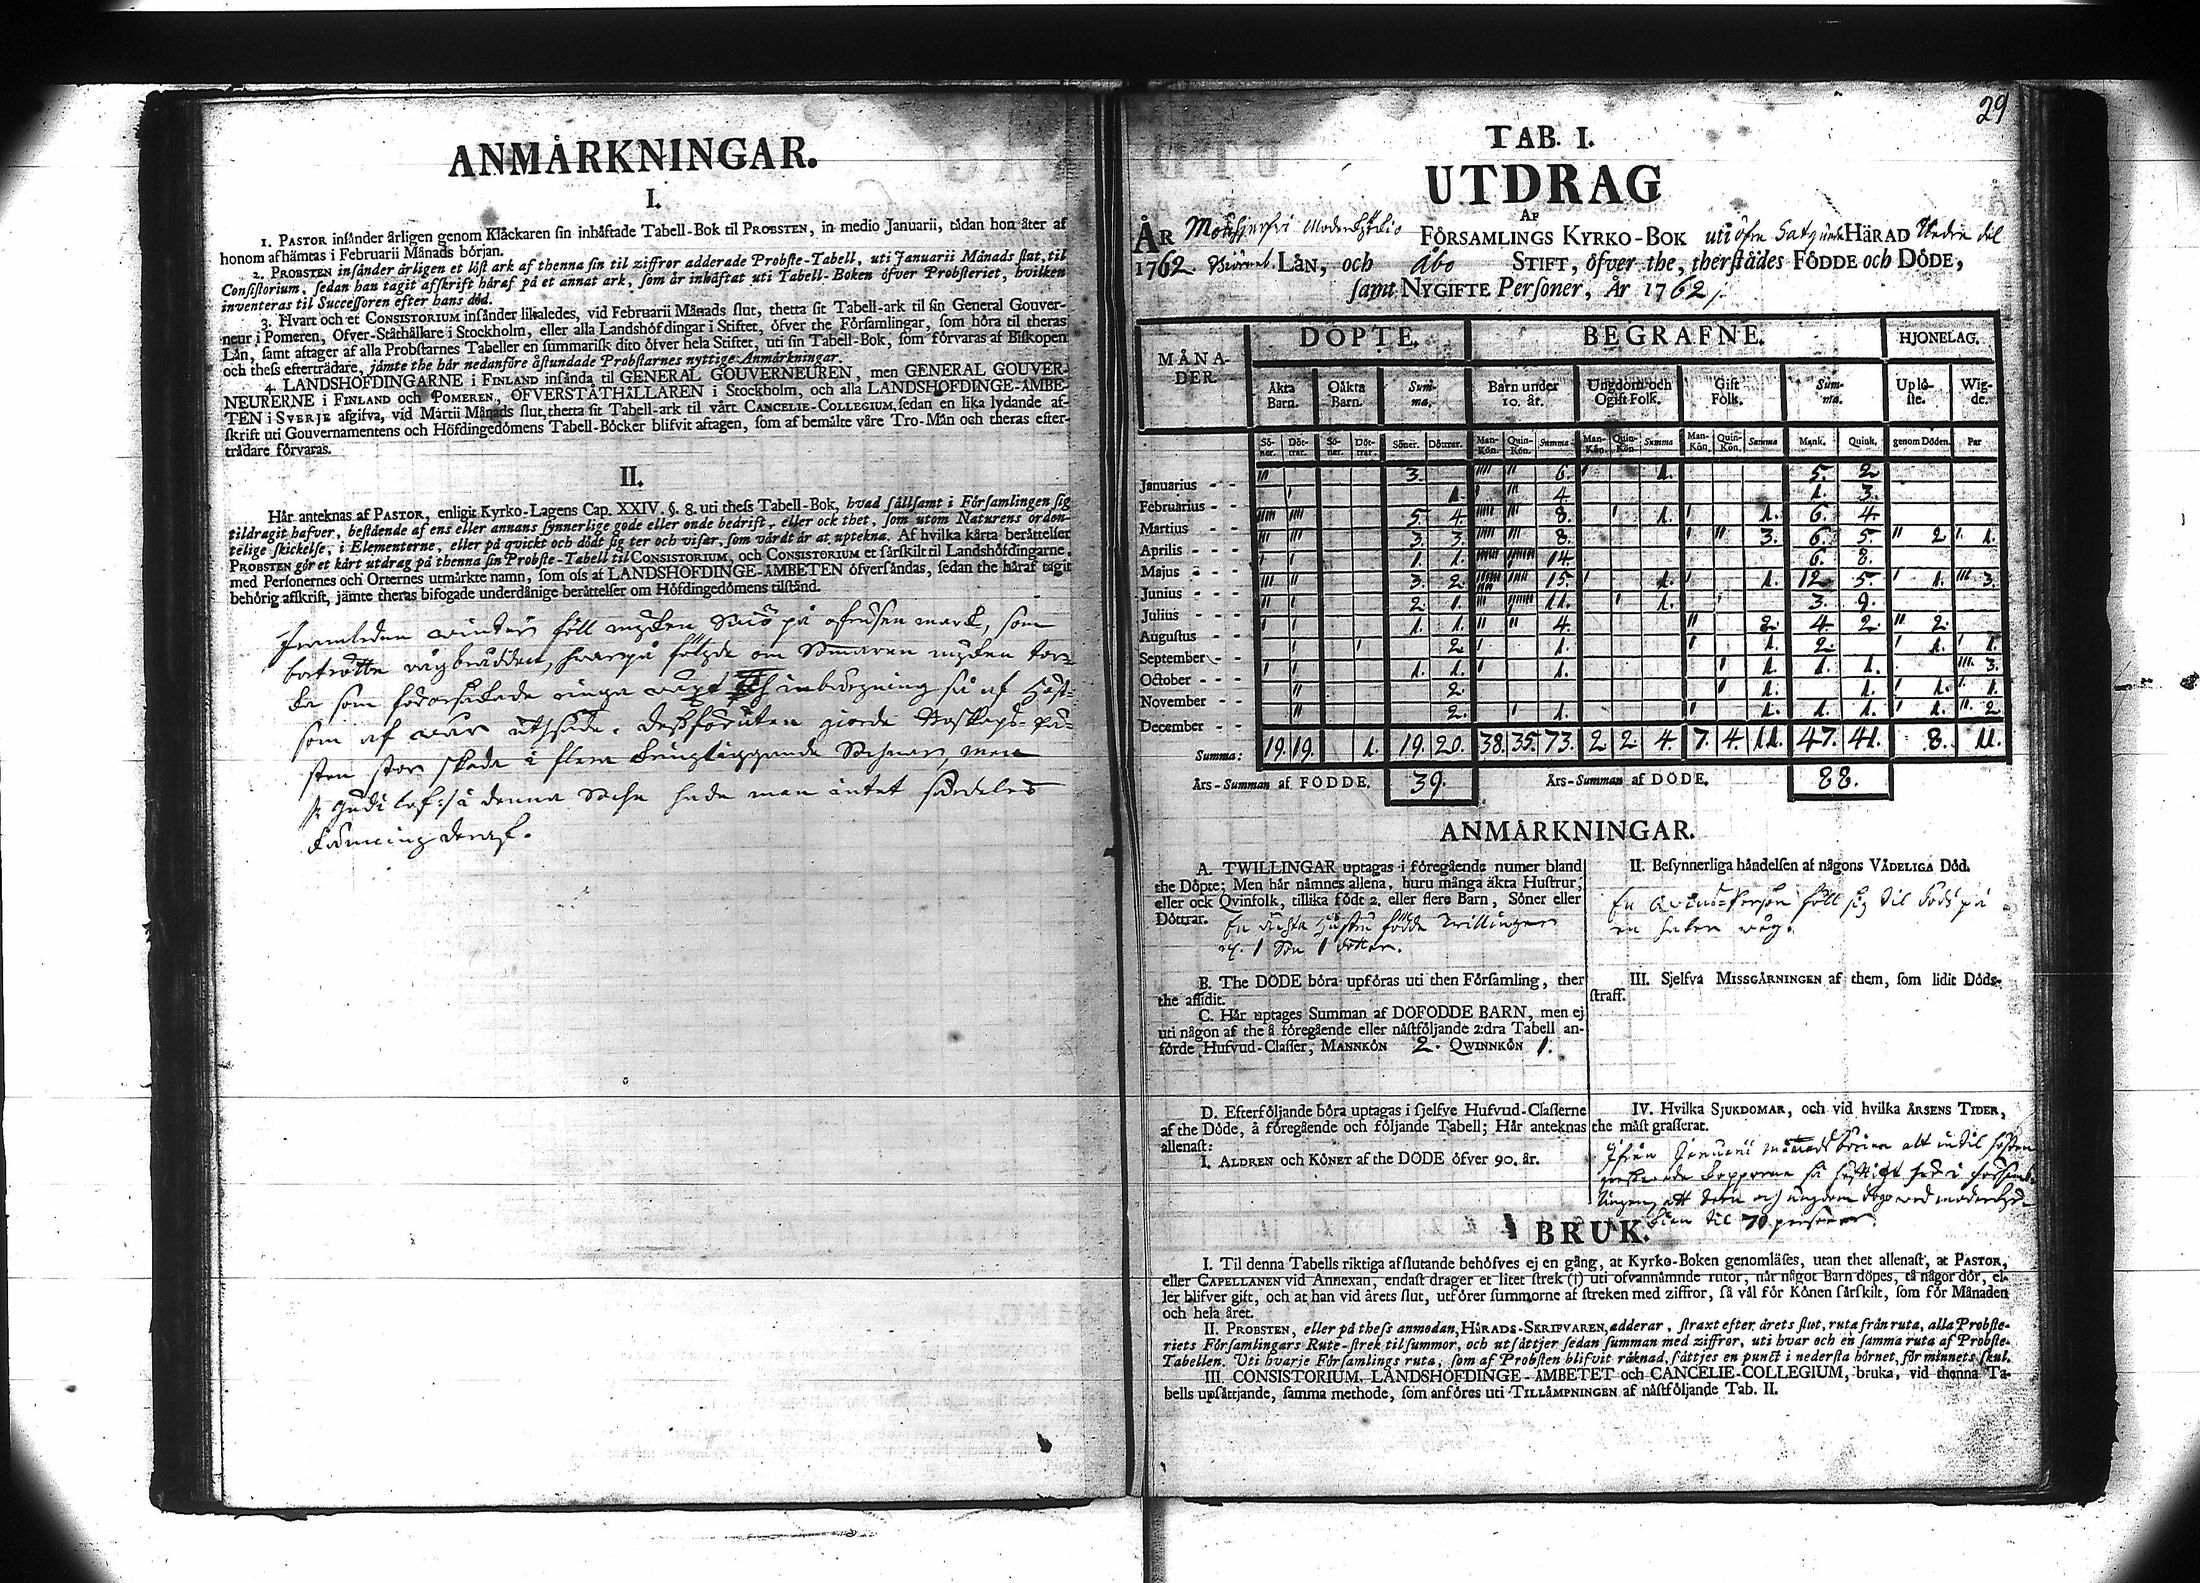 ANMÅRKNINGAR.
I.
1. PASTOR insånder årligen genom Klåckaren sin inhåftade Tabell-Bok til PROBSTEN, in medio Januarii, tådan hon åter af
honom afhåmtas i Februarii Månads början.
2. PROBSTEN insånder årligen et lost ark af thenna sin til ziffror adderade Probste-Tabell, uti Januarii Månads slut, til
Consistorium, sedan han tagit afskrift håraf på et annat ark, som år inbåftat uti Tabell-Boken ôfver Probsteriet, hvilken
inventeras til Successoren efter hans död.
3. Hvart och et CONSISTORIUM insånder likaledes, vid Februarii Månads slut, thetta sit Tabell-ark til sin General Gouver-
neur i Pomeren, Ofver-Ståthållare i Stockholm, eller alla Landshôfdingar i Stiftet, ôfver the Fôrsamlingar, som hôra til theras
Lån, samt aftager af alla Probstarnes Tabeller en summarisk dito ôfver hela Stiftet, uti sin Tabell-Bok, som fôrvaras af Biskopen
och thess eftertrådare, jåmte the hår nedanfôre åstundade Probstarnes nyttige Anmårkningar.
4. LANDSHOFDINGARNE i FINLAND insånda til GENERAL GOUVERNEUREN, men GENERAL GOUVER-
NEURERNE i FINLAND och POMEREN, OFVERSTÅTHÅLLAREN i Stockholm, och alla LANDSHOFDINGE-ÅMBE-
TEN i SVERJE afgifva, vid Martii Månads slut, thetta sit Tabell-ark til vårt CANCELIE-COLLEGIUM, sedan en lika lydande af-
skrift uti Gouvernamentens och Hôfdingedômens Tabell-Bôcker blifvit aftagen, som af bemålte våre Tro-Mån och theras efter-
trådare fôrvaras.
II.
Hår anteknas af PASTOR, enligit Kyrko-Lagens Cap. XXIV. §. 8. uti thess Tabell-Bok, hvad sållsamt i Fôrsamlingen sig
tildragit hafver, bestående af ens eller annans synnerlige gode eller onde bedrift, eller ock thet, som utom Naturens orden-
telige skickelse, i Elementerne, eller på qvickt och dôdt sig ter och visar, som vårdt år at uptekna. Af hvilka kårta beråttelser
PROBSTEN gôr et kårt utdrag på thenna sin Probste-Tabell til CONSISTORIUM, och CONSISTORIUM et sårskilt til Landshôfdingarne,
med Personernes och Orternes utmårkte namn, som oss af LANDSHOFDINGE-ÅMBETEN ôfversåndas, sedan the håraf tagit
behôrig afskrift, jåmte theras bifogade underdånige beråttelser om Hôfdingedômens tilstånd.
winter föll mycken Snö på ofrusen mark, som
om Somaren mycken tor-
ka som förorsakade ringa wäxt och inbärgning så af Höst-
som af wår utsäde. Dessförutan giorde Boskaps-
sten stor skada i flera kringliggande Sochnar, men
Gudi lof: i denna Sochn hade man intet
känning deraf.
29
TAB. I.
UTDRAG
AF
ÅR FÔRSAMLINGS KYRKO-BOK uti öfre HÅRAD Nedre del
1762. Biörneb. LÅN, och Åbo STIFT, ôfver the, therstådes FÔDDE och DÔDE,
samt NYGIFTE Personer, År 1762.
MÅNA-DER. DOPTE. BEGRAFNE. HJONELAG.
Åkta Barn. Oåkta Barn. Sum-ma. Barn under 10. år. Ungdom och Ogift Folk. Gift Folk. Sum-ma. Uplô-ste. Wig-de.
Sô-ner. Dôt-trar. Sô-ner. Dôt-trar. Sôner. Dôttrar. Man-Kôn. Quin-Kôn. Summa Man-Kôn. Quin-Kôn. Summa Man-Kôn. Quin-Kôn. Summa Mank. Quink. genom Dôden. Par
Januarius - - 3. 6. 1. 5. 2.
Februarius - - 1. 4. 1. 3.
Martius - - 5. 4. 8. 1. 1. 6. 4.
Aprilis - - 3. 3. 8. 3. 6. 5. 2. 1.
Majus - - 1. 1. 14. 6. 8.
Junius - - 3. 2. 15. 1. 1. 12. 5. 1. 3.
Julius - - 2. 1. 11. 1. 3. 9.
Augustus - - 1. 1. 4. 2. 4. 2. 2.
September - - 2. 1. 1. 2. 1. 1.
October - - - 1. 1. 1. 1. 1. 1. 3.
November - - 2. 1. 1. 1. 1.
December - - 2. 1. 1. 1. 1. 1. 2.
Summa: 19. 19. 1. 19. 20. 38. 35. 73. 2 2 4. 7. 4. 11. 47. 41. 8. 11.
Års-Summan af FODDE. 39. Års-Summan af DODE. 88.
ANMARKNINGAR.
A. TWILLINGAR uptagas i fôregående numer bland
the Dôpte; Men hår nåmnes allena, huru många åkta Hustrur,
eller ock Qvinfolk, tillika fôdt 2. eller flere Barn, Sôner eller
Dôttrar. En ächta Hustru födde twillingar
1 Son 1 dotter.
B. The DODE bôra upfôras uti then Fôrsamling, ther
the aflidit.
C. Hår uptages Summan af DOFODDE BARN, men ej
uti någon af the å fôregående eller nåstfôljande 2:dra Tabell an-
fôrde Hufvud-Classer, MANNKÔN 2. QWINNKÔN 1.
D. Efterfôljande bôra uptagas i sjelfve Hufvud-Classerne
af the Dôde, å fôregående och fôljande Tabell; Hår anteknas
allenast:
I. ALDREN och KÔNET af the DÔDE ôfver 90. år.
II. Besynnerliga håndelsen af någons VÅDELIGA Dôd.
En Qvins-Person föll sig til döds på
en haler wäg.
III. Sjelfva MISSGÅRNINGEN af them, som lidit Dôds-
straff.
IV. Hvilka SJUKDOMAR, och vid hvilka ÅRSENS TIDER,
the måst grasserat.
Ifrån Januarii månads början alt intil hösten
grasserade kopporna så häftigt här i församb-
lingen, att barn och ungdom dogo wed moderkyr-
kian til 70 personer.
BRUK.
I. Til denna Tabells riktiga afslutande behôfves ej en gång, at Kyrko-Boken genomlåses, utan thet allenast, at PASTOR,
eller CAPELLANEN vid Annexan, endast drager et litet strek (1) uti ofvannåmnde rutor, når något Barn dôpes, tå någor dôr, el-
ler blifver gift, och at han vid årets slut, utfôrer summorne af streken med ziffror, så vål fôr Kônen sårskilt, som fôr Månaden
och hela året.
II. PROBSTEN, eller på thess anmodan, HÅRADS-SKRIFVAREN, adderar, straxt efter årets slut, ruta från ruta, alla Probste-
riets Fôrsamlingars Rute-strek til summor, och utsåttjer sedan summan med ziffror, uti hvar och en samma ruta af Probste-
Tabellen. Uti hvarje Fôrsamlings ruta, som af Probsten blifvit råknad, såttjes en punct i nedersta hôrnet, fôr minnets skul.
III. CONSISTORIUM, LANDSHOFDINGE-ÅMBETET och CANCELIE-COLLEGIUM, bruka, vid thenna Ta-
bells upsåttjande, samma methode, som anfôres uti TILLÅMPNINGEN af nåstfôljande Tab. II.